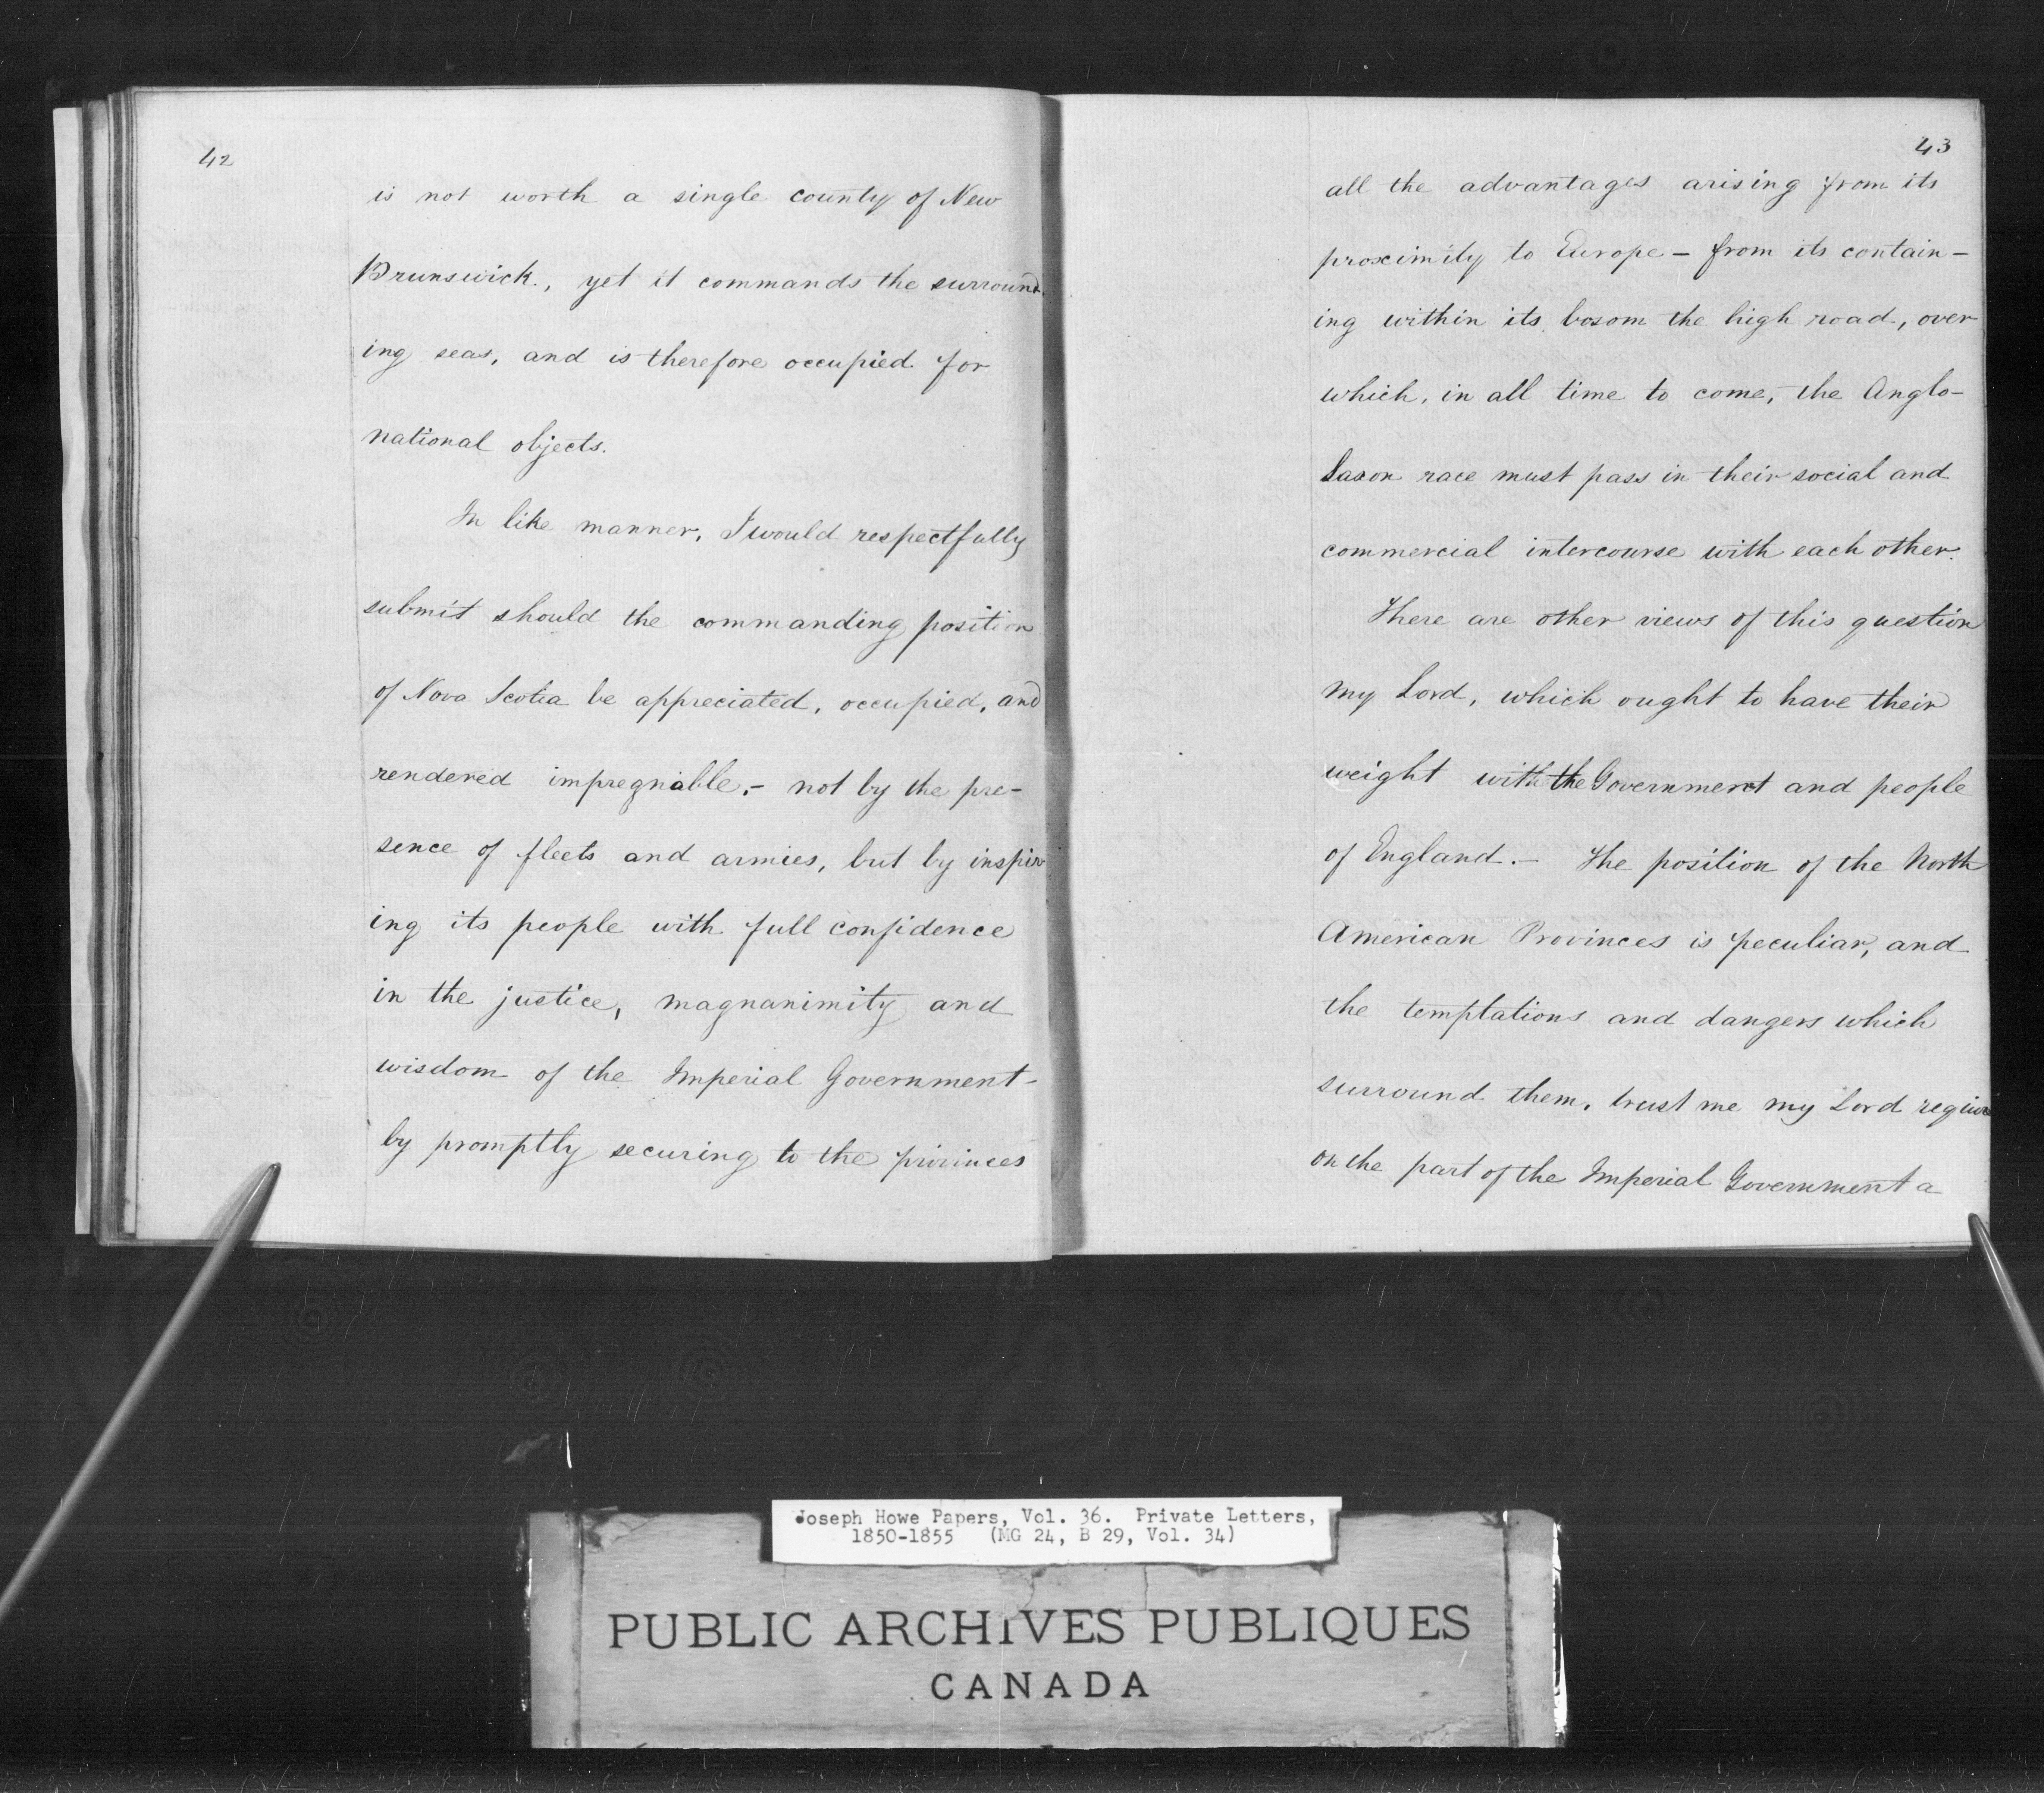 42
is not worth a single county of New
Brunswick., yet it commands the surround
ing seas, and is therefore occupied for
national objects.
In like manner, I would respectfully
submit should the commanding position
of Nova Scotia be appreciated, occupied, and
rendered impregnable,- not by the pre-
sence of fleets and armies, but by inspir
ing its people with full confidence
in the justice, magnanimity and
wisdom of the Imperial Government-
by promptly securing to the provinces
43
all the advantages arising from its
proximity to Europe - from its contain-
ing within its bosom the high road, over
which, in all time to come, the Anglo-
Saxon race must pass in their social and
commercial intercourse with each other.
There are other views of this question
my Lord, which ought to have their
weight with the Government and people
of England.- The position of the North
American Provinces is peculiar, and
the temptations and dangers which
surround them, trust me my Lord require
on the part of the Imperial Government a
Joseph Howe Papers, Vol. 36. Private Letters,
1850-1855 (MG 24, B 29, Vol. 34)
PUBLIC ARCHIVES PUBLIQUES
CANADA